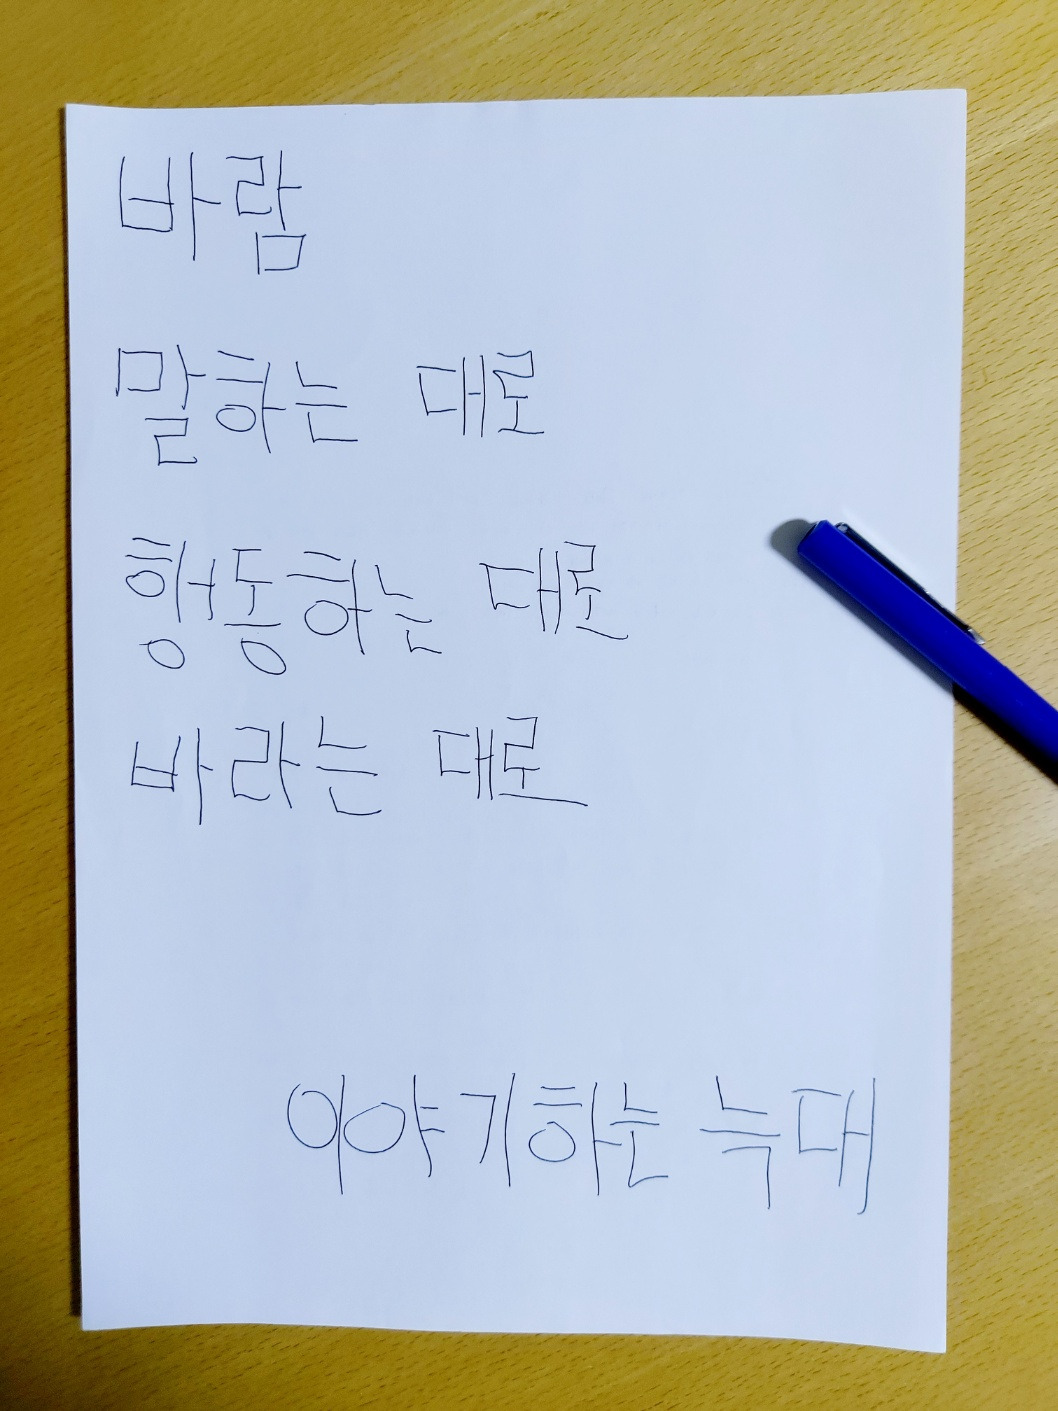 바람
말하는 대로
행동하는 대로
바라는 대로
이야기하는 늑대